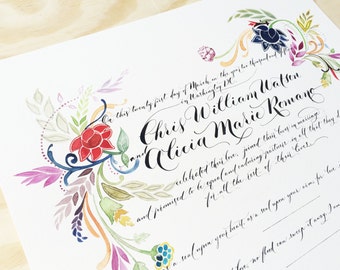 On this twenty first day of March in the year two thousand
in Washington DC
Chris William Watson
and Alicia Marie Romano
celebrated their love, joined their lives in marriage
and promised to be equal and enduring partners in all that they do
for all the rest of their lives.
a seal upon your heart, as a seal upon your arm, for love
floods can sweep it away